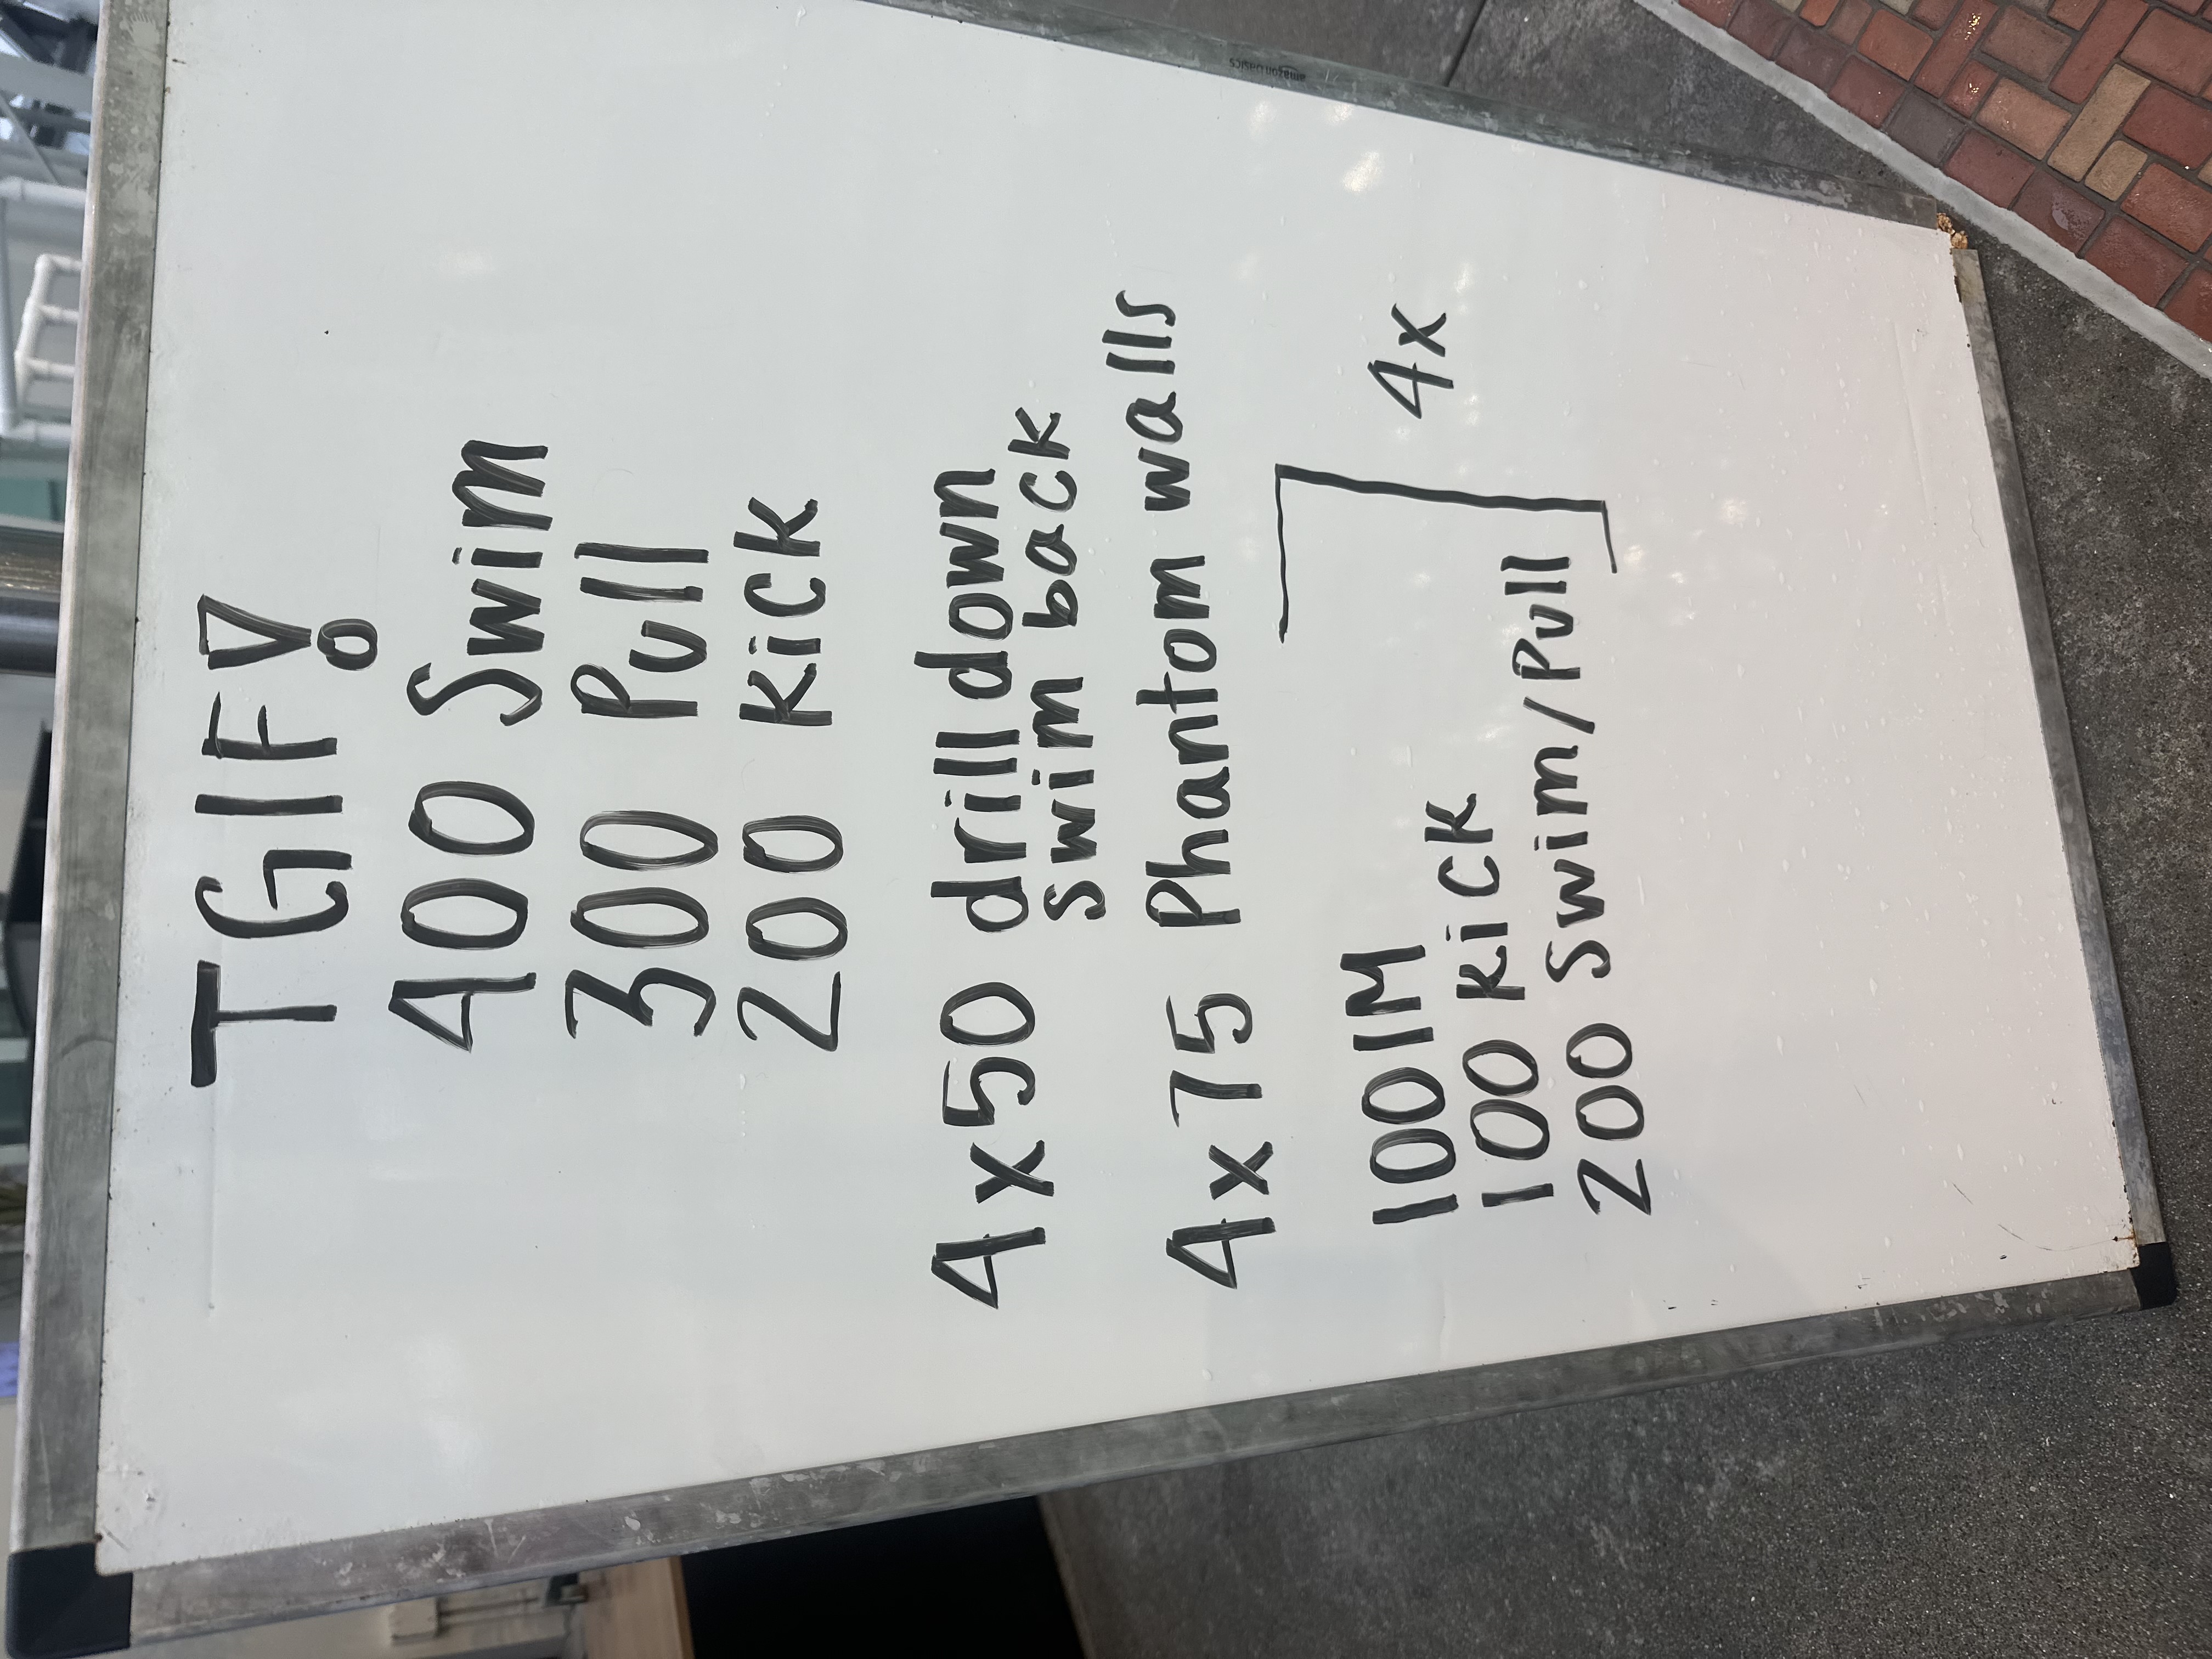 TGIF!
400 Swim
300 Pull
200 Kick
4x50 drill down
swim back
4x75 Phantom walls
100 IM
100 Kick
200 Swim/Pull
4x
amazon basics